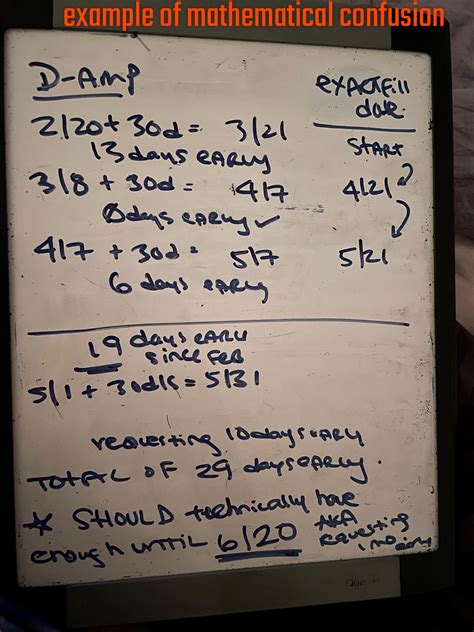 example of mathematical confusion
D-AMP
EXACT Fill
date
2/20 + 30d = 3/21
13 days EARLY
START
3/8 + 30d = 4/7
4/21
0 days EARLY ✓
4/7 + 30d = 5/7
5/21
6 days EARLY
19 days EARLY
since FEB
5/1 + 30d/s = 5/31
requesting 10 days early
TOTAL OF 29 days EARLY
* SHOULD technically have
enough until 6/20
AKA
requesting